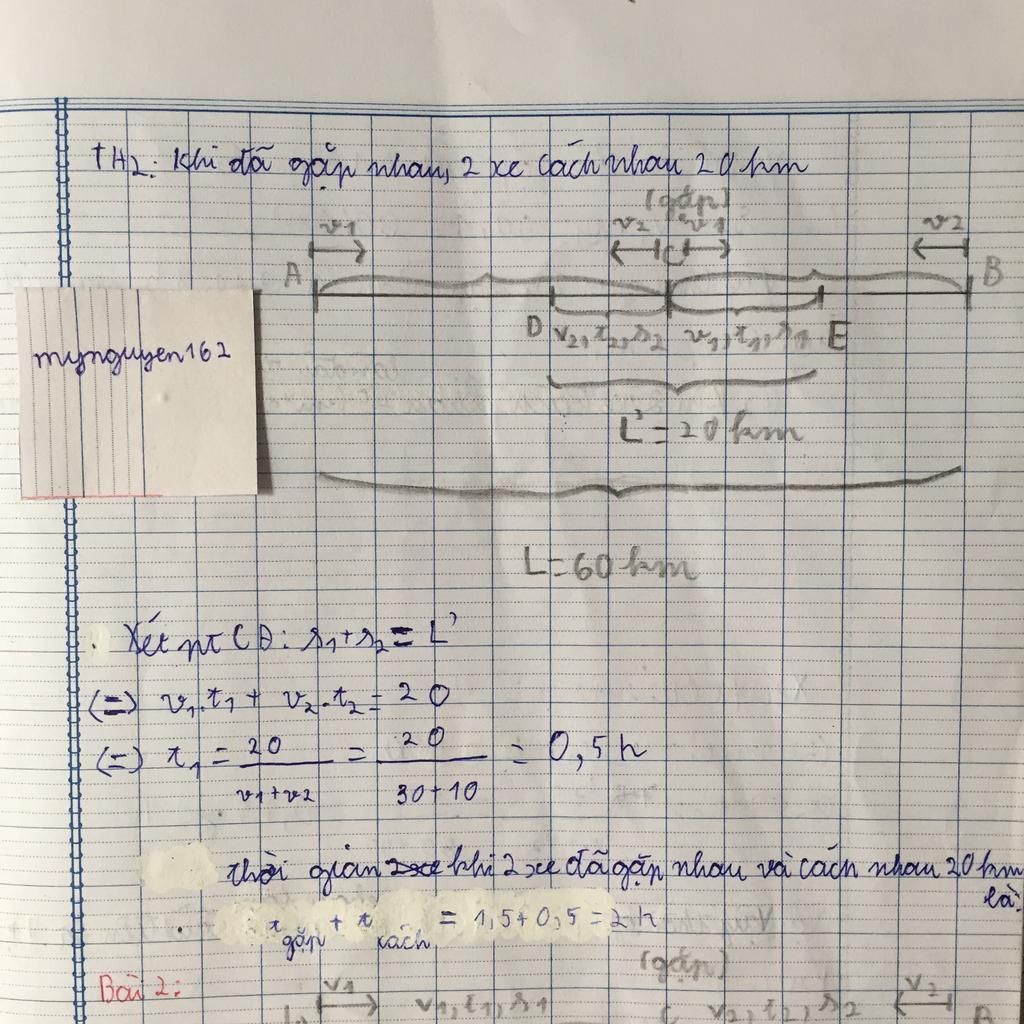 TH2: Khi đã gặp nhau, 2 xe cách nhau 20 km
(gặp)
v1 v2 v1 v2
A C B
D v2, t2, s2 v1, t1, s1 E
mynguyen162
L' = 20 km
L = 60 km
Xét pt CĐ: s1 + s2 = L'
(=) v1.t1 + v2.t2 = 20
(=) t1 = 20 / v1+v2 = 20 / 30+10 = 0,5 h
thời gian khi 2 xe đã gặp nhau và cách nhau 20 km
là:
t gặp + t cách = 1,5 + 0,5 = 2 h
(gặp)
Bài 2:
v1 v1, t1, s1 C v2, t2, s2 v2
B